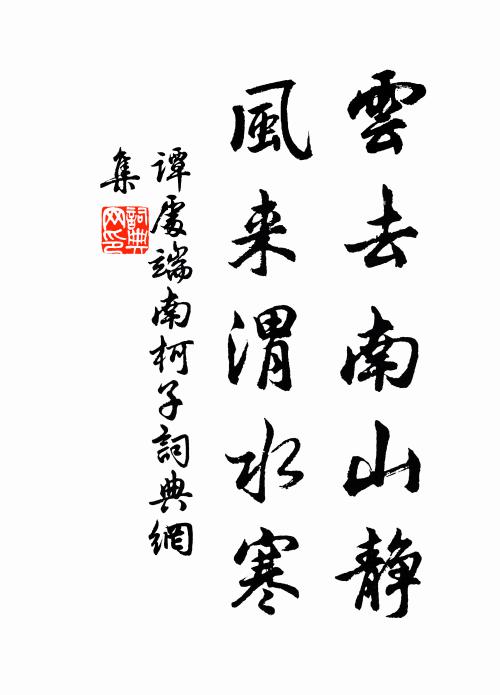 雲去南山靜
風来渭水寒
譚處端南柯子詞典網
集
詞典網印